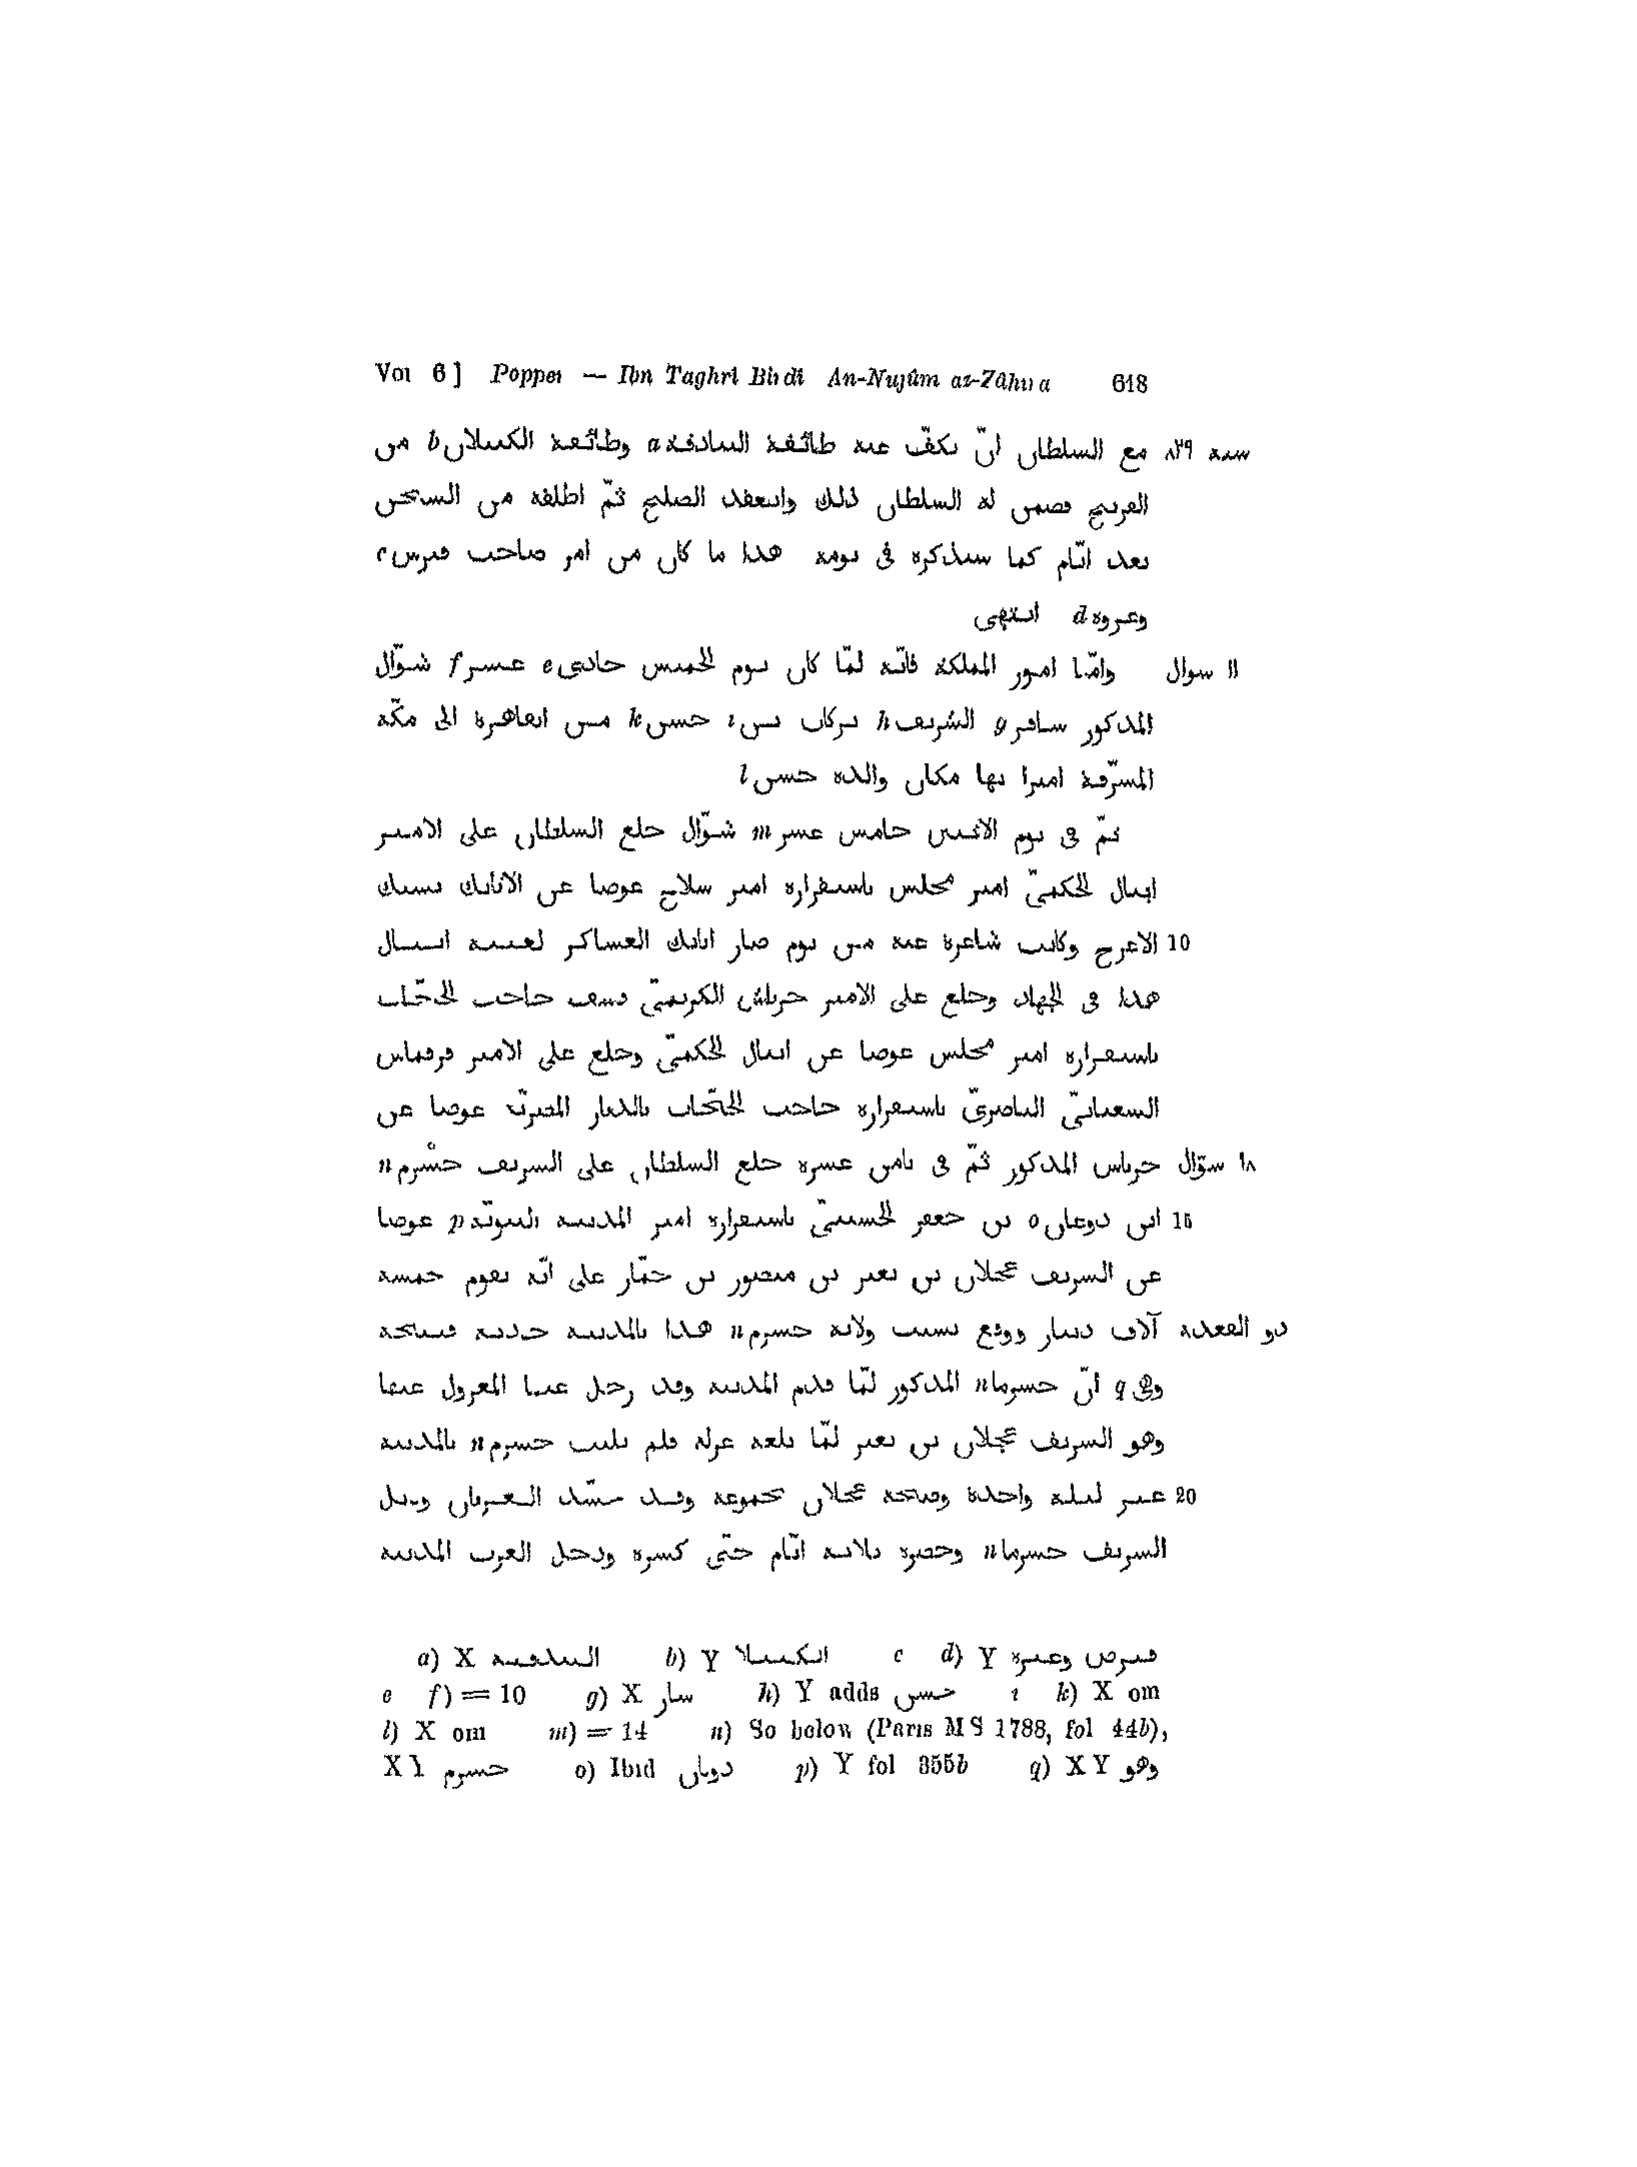 Vol 6] Popper — Ibn Taghrî Birdî An-Nujûm az-Zâhira 618
سنة ٨٢٩ مع السلطان انّ يكفّ عنه طائفة البنادقة a وطائفة الكتيلان b من
الفرنج فضمن له السلطان ذلك وانعقد الصلح ثمّ اطلقه من السجن
بعد ايّام كما سنذكره فى يومه هذا ما كان من امر صاحب قبرس c
وغزوه d انتهى
١١ شوال وامّا امور المملكة فانّه لمّا كان يوم الخميس حادى e عشر f شوّال
المذكور سافر g الشريف h بركات بن i حسن k من القاهرة الى مكّة
المشرّفة اميرا بها مكان والده حسن l
ثمّ فى يوم الاثنين خامس عشر m شوّال خلع السلطان على الامير
اينال الجكمىّ امير مجلس باستقراره امير سلاح عوضا عن الاتابك يشبك
10 الاعرج وكانت شاغرة عنه من يوم صار اتابك العساكر لغيبة اينال
هذا فى الجهاد وخلع على الامير جرباش الكريمىّ حاجب الحجّاب
باستقراره امير مجلس عوضا عن اينال الجكمىّ وخلع على الامير قرقماس
الشعبانىّ الناصرىّ باستقراره حاجب الحجّاب بالديار المصريّة عوضا عن
١٨ شوّال جرباش المذكور ثمّ فى ثامن عشره خلع السلطان على الشريف خشْرم n
15 ابن دوغان o بن جعفر الحسينىّ باستقراره امير المدينة النبويّة p عوضا
عن الشريف عجلان بن نعير بن منصور بن جمّاز على انّه يقوم خمسة
ذو القعدة آلاف دينار ووقع بسبب ولاية خشرم n هذا بالمدينة حادثة قبيحة
وهى q انّ خشرما n المذكور لمّا قدم المدينة وقد رحل عنها المعزول عنها
وهو الشريف عجلان بن نعير لمّا بلغه عزله فلم يلبث خشرم n بالمدينة
20 غير ليلة واحدة وصبحه عجلان بجموعه وقد حشّد العربان وقاتل
الشريف خشرما n وحصره ثلاثة ايّام حتّى كسره ودخل العرب المدينة
a) X البندقية b) Y الكتيلا c d) Y قبرص وغيره
e f) = 10 g) X سار h) Y adds حسن i k) X om
l) X om m) = 14 n) So below (Paris MS 1788, fol 44b),
XY حسرم o) Ibid دوغان p) Y fol 355b q) XY وهو